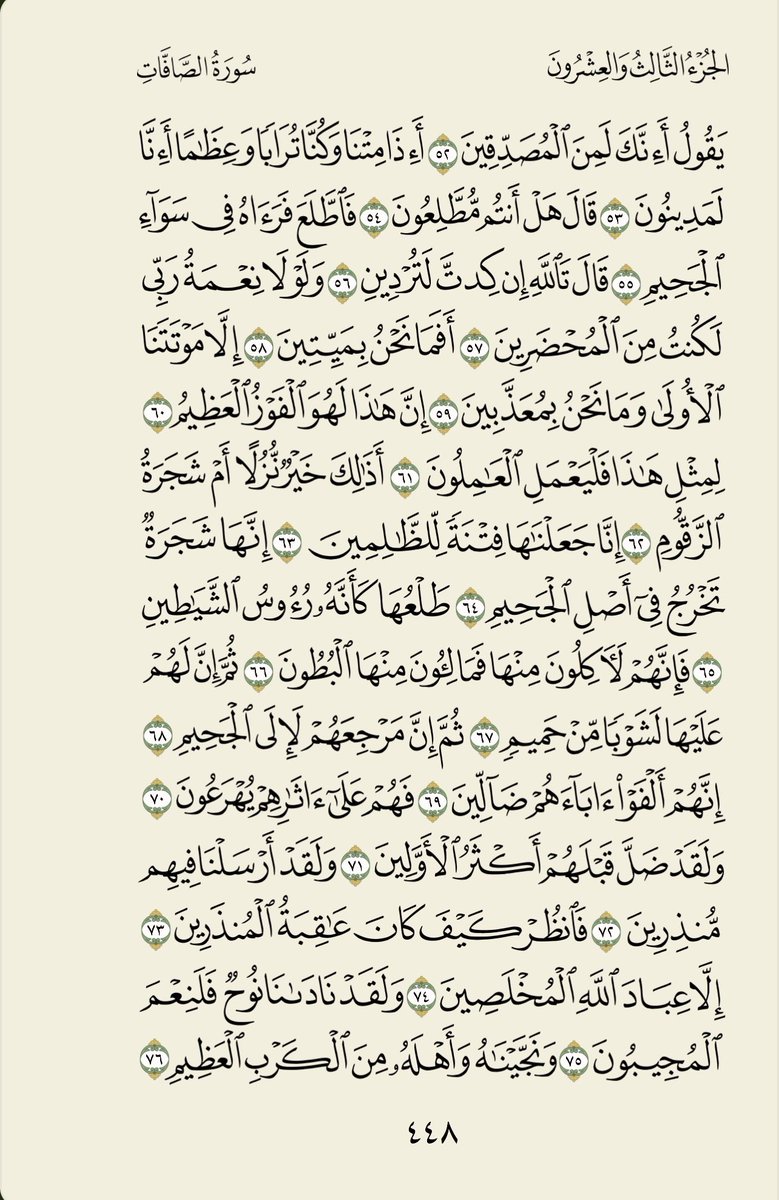 الجُزْءُ الثَّالِثُ وَالعِشْرُونَ
سُورَةُ الصَّافَّاتِ
يَقُولُ أَءِنَّكَ لَمِنَ ٱلْمُصَدِّقِينَ ٥٢ أَءِذَا مِتْنَا وَكُنَّا تُرَابًا وَعِظَٰمًا أَءِنَّا
لَمَدِينُونَ ٥٣ قَالَ هَلْ أَنتُم مُّطَّلِعُونَ ٥٤ فَٱطَّلَعَ فَرَءَاهُ فِي سَوَآءِ
ٱلْجَحِيمِ ٥٥ قَالَ تَٱللَّهِ إِن كِدتَّ لَتُرْدِينِ ٥٦ وَلَوْلَا نِعْمَةُ رَبِّي
لَكُنتُ مِنَ ٱلْمُحْضَرِينَ ٥٧ أَفَمَا نَحْنُ بِمَيِّتِينَ ٥٨ إِلَّا مَوْتَتَنَا
ٱلْأُولَىٰ وَمَا نَحْنُ بِمُعَذَّبِينَ ٥٩ إِنَّ هَٰذَا لَهُوَ ٱلْفَوْزُ ٱلْعَظِيمُ ٦٠
لِمِثْلِ هَٰذَا فَلْيَعْمَلِ ٱلْعَٰمِلُونَ ٦١ أَذَٰلِكَ خَيْرٌ نُّزُلًا أَمْ شَجَرَةُ
ٱلزَّقُّومِ ٦٢ إِنَّا جَعَلْنَٰهَا فِتْنَةً لِّلظَّٰلِمِينَ ٦٣ إِنَّهَا شَجَرَةٌ
تَخْرُجُ فِيٓ أَصْلِ ٱلْجَحِيمِ ٦٤ طَلْعُهَا كَأَنَّهُۥ رُءُوسُ ٱلشَّيَٰطِينِ
٦٥ فَإِنَّهُمْ لَأَكِلُونَ مِنْهَا فَمَالِـُٔونَ مِنْهَا ٱلْبُطُونَ ٦٦ ثُمَّ إِنَّ لَهُمْ
عَلَيْهَا لَشَوْبًا مِّنْ حَمِيمٍ ٦٧ ثُمَّ إِنَّ مَرْجِعَهُمْ لَإِلَى ٱلْجَحِيمِ ٦٨
إِنَّهُمْ أَلْفَوْا۟ ءَابَآءَهُمْ ضَآلِّينَ ٦٩ فَهُمْ عَلَىٰٓ ءَاثَٰرِهِمْ يُهْرَعُونَ ٧٠
وَلَقَدْ ضَلَّ قَبْلَهُمْ أَكْثَرُ ٱلْأَوَّلِينَ ٧١ وَلَقَدْ أَرْسَلْنَا فِيهِم
مُّنذِرِينَ ٧٢ فَٱنظُرْ كَيْفَ كَانَ عَٰقِبَةُ ٱلْمُنذَرِينَ ٧٣
إِلَّا عِبَادَ ٱللَّهِ ٱلْمُخْلَصِينَ ٧٤ وَلَقَدْ نَادَىٰنَا نُوحٌ فَلَنِعْمَ
ٱلْمُجِيبُونَ ٧٥ وَنَجَّيْنَٰهُ وَأَهْلَهُۥ مِنَ ٱلْكَرْبِ ٱلْعَظِيمِ ٧٦
٤٤٨